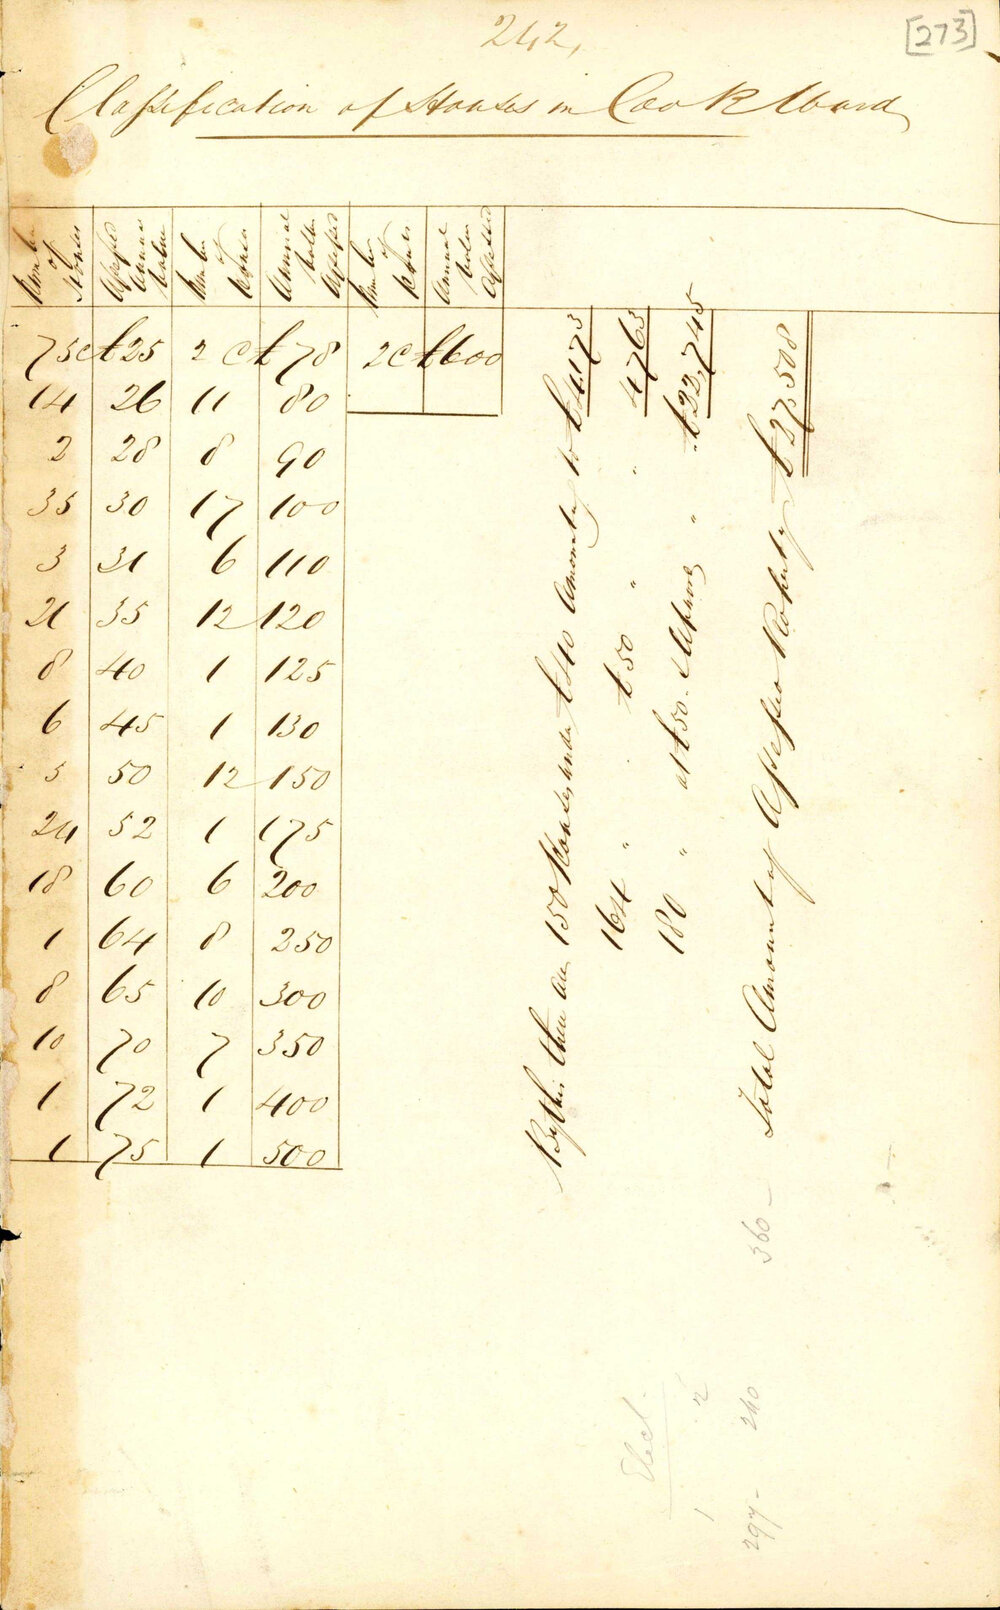 242,
[273]
Classification of Houses in Cook Ward
Number of Houses | Assessed Annual Value | Number of Houses | Annual Value Assessed | Number of Houses | Annual Value Assessed
75 @ £25 | 2 @ £78 | 2 @ £600
14 26 | 11 80
2 28 | 8 90
35 30 | 17 100
3 31 | 6 110
21 35 | 12 120
8 40 | 1 125
6 45 | 1 130
5 50 | 12 150
24 52 | 1 175
18 60 | 6 200
1 64 | 8 250
8 65 | 10 300
10 70 | 7 350
1 72 | 1 400
1 75 | 1 500
By this there are 150 Houses under £40 Amounting to £4173
164 " . £50 " " 4763
180 " at £50 & Upward " . £22,745
Total Amount of Assessed Property £27,508
360 -
Elect
1 2
297 - 240